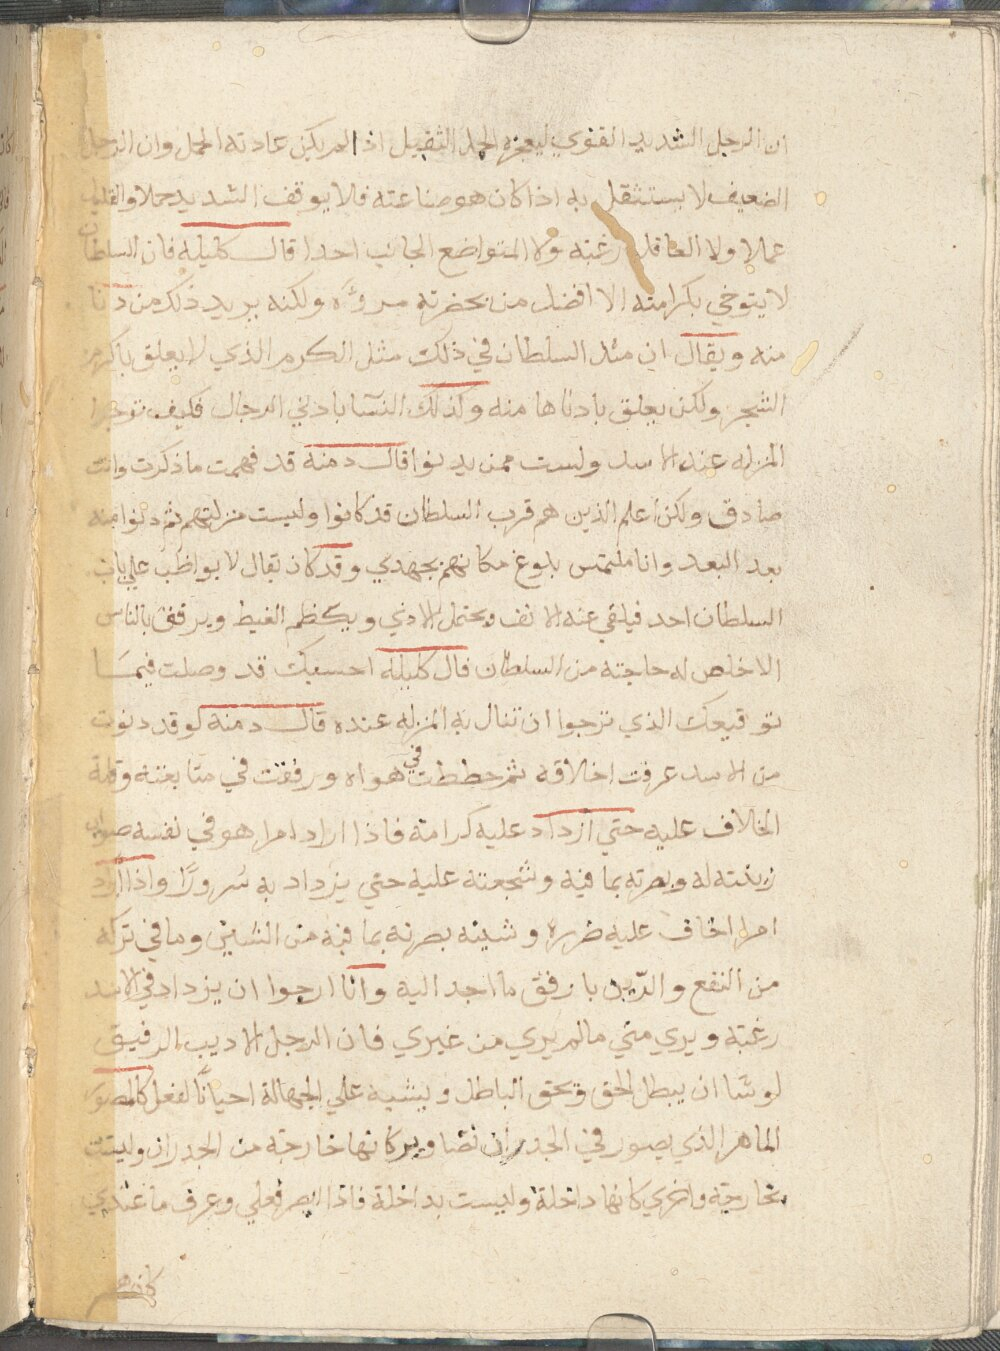 ان الرجل الشديد القوي ليعجزه الحمل الثقيل اذا لم يكن عادته الحمل وان الرجل
الضعيف لا يستثقل به اذا كان هو صناعته فلا يوقف الشديد حملا والقليل
عملا ولا العاقل رغبته ولا المتواضع الجانب احدا قال كليله فان السلطان
لا يتوخي بكرامته الا افضل من بحضرته مروءه ولكنه يريد ذلك من دنا
منه ويقال ان مثل السلطان في ذلك مثل الكرم الذي لا يعلق باكرم
الشجر ولكن يعلق بادناها منه وكذلك النسا بادني الرجال فكيف ترجوا
المنزله عند الاسد ولست ممن يدنوا قال دمنة قد فهمت ما ذكرت وانت
صادق ولكن اعلم الذين هم قرب السلطان قد كانوا وليست منزلتهم ثم دنوا منه
بعد البعد وانا ملتمس بلوغ مكانهم بجهدي وقد كان يقال لا يواظب علي باب
السلطان احد فيلقي عنه الانف ويحتمل الاذي ويكظم الغيظ ويرفق بالناس
الا خلص له حاجته من السلطان قال كليله احسبك قد وصلت فيما
توقيعك الذي ترجوا ان تنال به المنزله عنده قال دمنه لو قد دنوت
من الاسد عرفت اخلاقه ثم حططت في هواه ورفقت في متابعته وقلة
الخلاف عليه حتي ازداد عليه كرامة فاذا اراد امرا هو في نفسه صواب
زينته له وبصرته بما فيه وشجعته عليه حتي يزداد به سرورًا واذا اراد
امرا اخاف عليه ضرره وشينه بصرته بما فيه من الشين وما في تركه
من النفع والزين بارفق ما اجد اليه وانا ارجوا ان يزداد في الاسد
رغبته ويري مني ما لم يري من غيري فان الرجل الاديب الرفيق
لو شا ان يبطل الحق ويحق الباطل ويشبه علي الجهالة احيانًا لفعل كالمصور
الماهر الذي يصور في الجدران تصاوير كانها خارجة من الجدران وليست
بخارجة واخري كانها داخلة وليست بداخلة فاذا ابصر فعلي وعرف ما عندي
كان هو